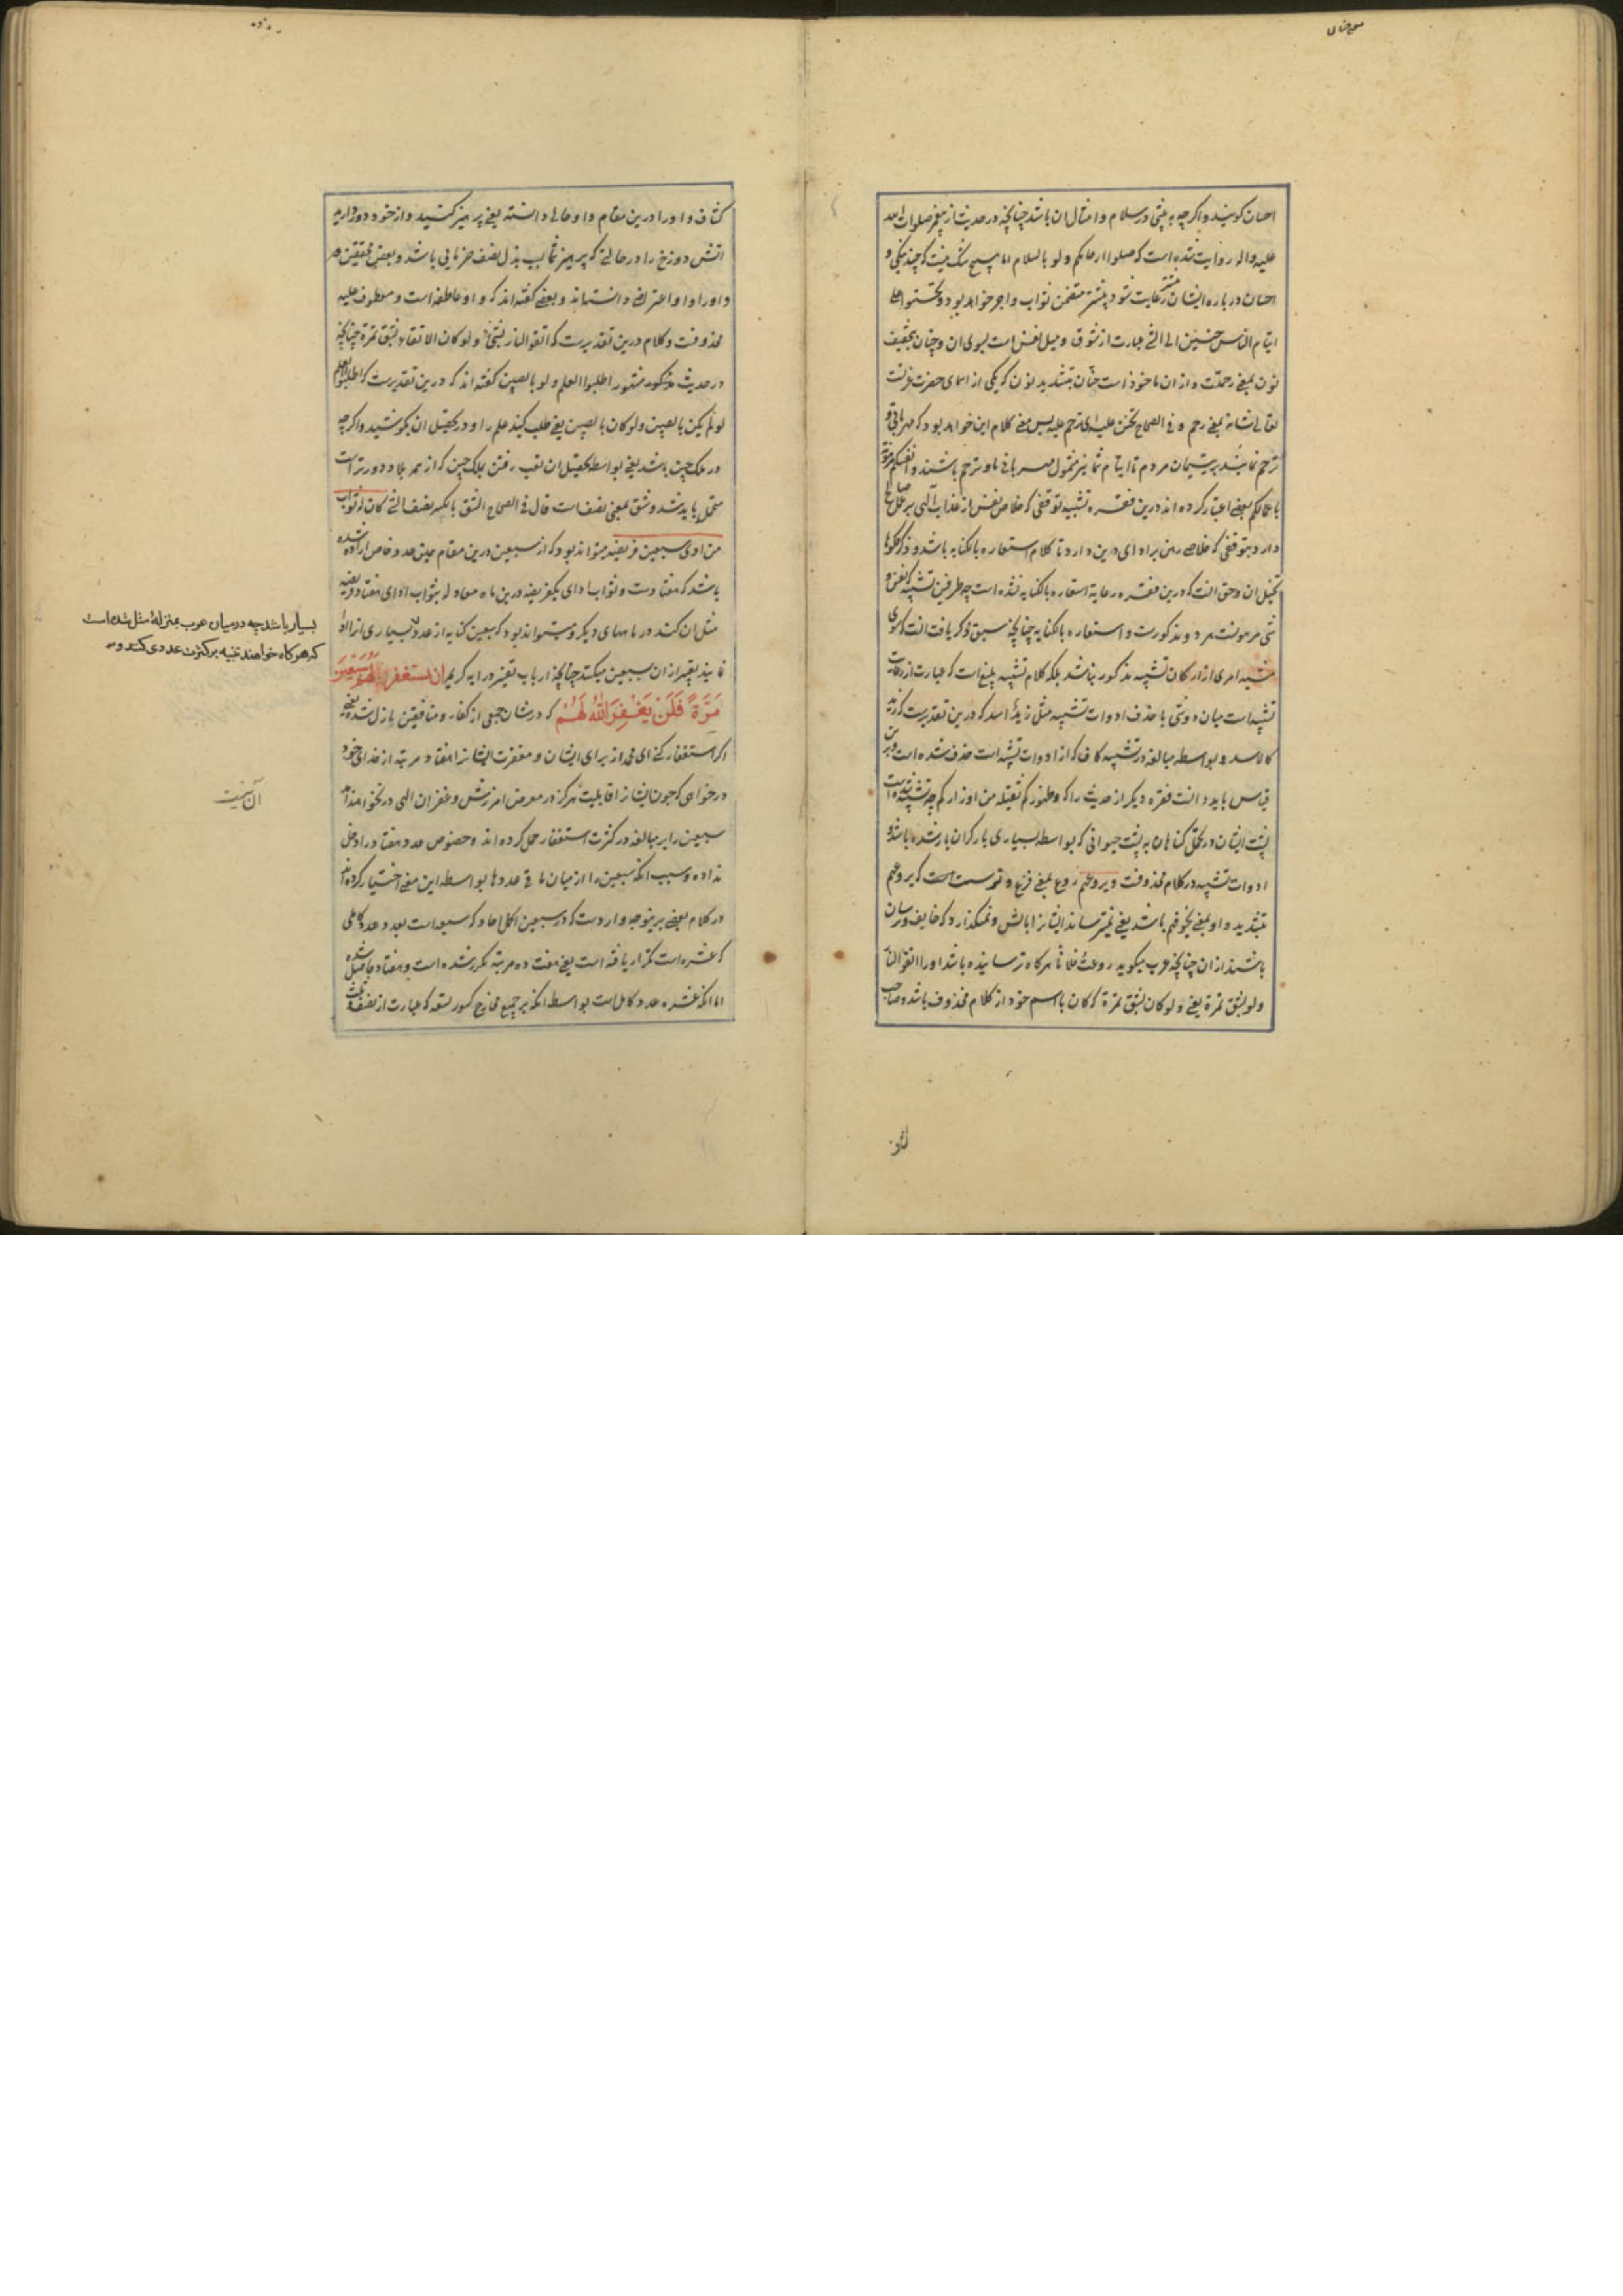 احسان کویند و اکرچه به پنتی در سلام و امثال ان باشد چنانچه در حدیث از پیغمبر صلوات الله
علیه واله روایت شده است که صلوا ارحامکم ولو بالسلام اما هیچ شک نیست که چند نیکی و
احسان درباره ایشان بیشتر رعایت شود بیشتر متضمن ثواب و اجر خواهد بود و تحننوا علی
ایتام الناس حنین الی الشئ عبارت از شوق و میل نفس است بسوی ان و حنان بتخفیف
نون بمعنی رحمتست و ازان ماخوذ است حنّان بتشدید نون که یکی از اسمای حضرت عزتست
تعالی شانه بمعنی رحیم و فی الصحاح تحنن علیه ای ترحم علیه پس معنی کلام این خواهد بود که مهربانی و
ترحم نمائید بر یتیمان مردم تا ایتام شما نیز مشمول مهربانی و ترحم باشند و انفسکم مرهونة
باعمالکم بعضی اعتبار کرده اند درین فقره تشبیه توقفی که خلاص نفس از عذاب الهی بر عمل صالح
دارد بتوقفی که خلاصی رهن بر ادای دین دارد تا کلام استعاره بالکنایه باشد و ذکر فکوها
تخییل ان و حق انست که درین فقره رعایة استعاره بالکنایه نشده است چه طرفین تشبیه که نفس و
شی مرهونست هر دو مذکورست و استعاره بالکنایه چنانچه سبق ذکر یافت انست که سوی
مشبه امری از ارکان تشبیه مذکور نباشد بلکه کلام تشبیه بلیغ است که عبارت از رعایت
تشبیه است میان دو شی با حذف ادوات تشبیه مثل زیدٌ اسد که درین تقدیرست که زید
کالاسد و بواسطه مبالغه در تشبیه کاف که از ادوات تشبیه است حذف شده است و برین
قیاس باید دانست فقره دیکر از حدیث را که و ظهورکم ثقیله من اوزارکم چه تشبیه شده است
پشت ایشان در تحمل کناهان به پشت حیوانی که بواسطه بسیاری بار کران بار شده باشد و
ادوات تشبیه در کلام محذوفست و یروعهم روع بمعنی فزع و ترسست که یروعهم
بتشدید واو بمعنی یخوفهم باشد یعنی نمیترساند ایشانرا باتش و نمیکذارد که خایف و ترسان
باشند ازان چنانچه عرب میکوید روعتُ فلاناً هرکاه ترسانیده باشد او را اتقوا النار
ولو بشق تمرة یعنی ولو کان بشق تمرة که کان با اسم خود از کلام محذوف باشد و صاحب
کشاف
کشاف واو را درین مقام واو حالی دانسته یعنی پرهیز کنید و از خود دور دارید
اتش دوزخ را در حالتی که پرهیز شما بسبب بذل نصف خرمایی باشد و بعضی محققین در
واو را واو اعتراض دانسته اند و بعضی کفته اند که واو عاطفه است و معطوف علیه
محذوفست و کلام درین تقدیرست که اتقوا النار بشیٔ ولو کان الاتقاء بشق تمرة چنانچه
در حدیث مشهور اطلبوا العلم ولو بالصین کفته اند که درین تقدیرست که اطلبوا العلم
لو لم یکن بالصین ولو کان بالصین یعنی طلب کنید علم را و در تحصیل ان بکوشید و اکرچه
در ملک چین باشد یعنی بواسطه تحصیل ان تعب رفتن بملک چین که از همه بلاد دورتر است
متحمل باید شد و شق بمعنی نصف است قال فی الصحاح الشق بالکسر نصف الشئ کان له ثواب
من ادی سبعین فریضه میتواند بود که از سبعین درین مقام همین عدد خاص اراده شده
باشد که هفتادست و ثواب ادای یکفریضه درین ماه معادله بثواب ادای هفتاد فریضه
مثل ان کند در ماههای دیکر و میتواند بود که سبعین کنایه از عدد بسیاری از انها
نمایند تعبیر ازان سبعین میکنند چنانچه ارباب تفسیر در ایه کریمه ان تستغفر لهم سبعین
مَرَّةً فَلَن یَغْفِرَ اللّٰهُ لَهُمْ که در شان جمعی از کفار و منافقین نازل شده یعنی
اکر استغفار کنی ای محمد از برای ایشان و مغفرت ایشانرا هفتاد مرتبه از خدای خود
درخواهی که چون ایشانرا قابلیت هرکز در معرض امرزش و غفران الهی درنخواهند امد
سبعین را بر مبالغه در کثرت استغفار حمل کرده اند و خصوص عدد هفتاد را دخل
نداده و سبب انکه سبعین را از میان باقی عددها بواسطه این معنی اختیار کرده اند
در کلام بعضی برینوجه واردست که در سبعین اکمل احاد که سبعه است بعدد عدد کاملی
که عشره است تکرار یافته است یعنی هفت ده مرتبه مکرر شده است و هفتاد حاصل شده
اما انکه عشره عدد کامل است بواسطه انکه بر جمیع مخارج کسور تسعه که عبارت از نصف و ثلث
بسیار باشد چه در میان عرب بمنزلهٔ مثل شده است
که هرکاه خواهند تنبیه بر کثرت عددی کنند و
آن نیست